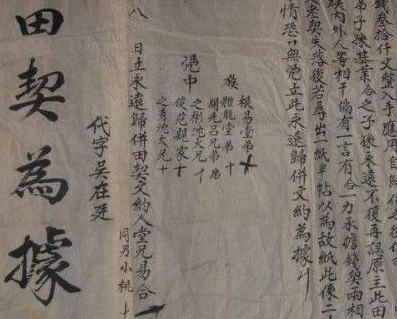 錢叁拾仟文整入手應用自
弟子孫基業合之子孫永遠不復再誤原主此田
族內外人等相干倘有一言有合一力承擔錢契兩相
老契失落復若尋出一紙半帖以為故紙此係二
情恐口無憑立此永遠歸併文約為據
族
根易堂弟十
體龍堂弟十
開先呂兄弟
憑中
之彬沈大兄十
俊范親家十
之秀沈大兄十
八 日立永遠歸併田契文約人堂兄易合
同男小桃十
代字吳在廷
田契為據